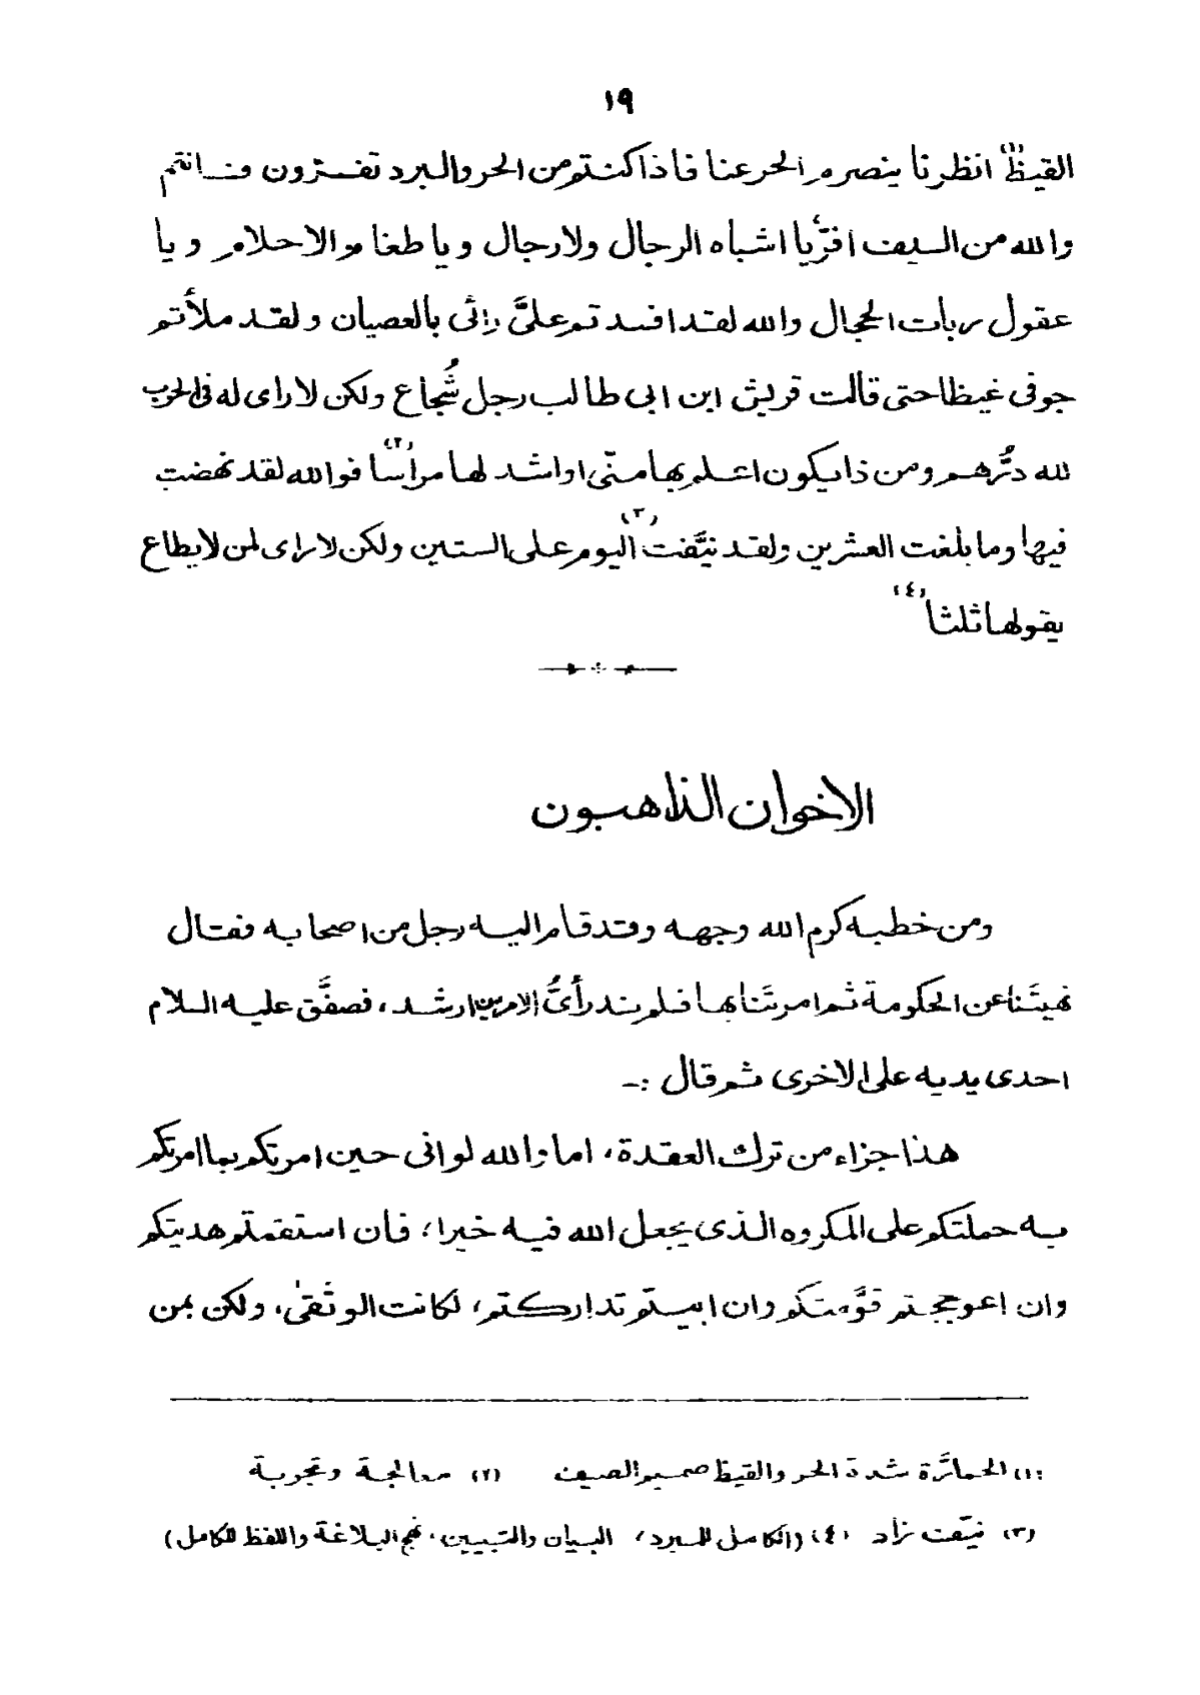 ١٩
القيظ(١) انظرنا ينصرم الحر عنا فاذا كنتم من الحر والبرد تفسرون فانتم
والله من السيف افرّ يا اشباه الرجال ولا رجال ويا طغام الاحلام ويا
عقول ربات الحجال والله لقد افسدتم علىَّ رائى بالعصيان ولقد ملأتم
جوفى غيظا حتى قالت قريش ابن ابى طالب رجل شُجاع ولكن لا راى له فى الحرب
لله درُّهم ومن ذا يكون اعلم بها منّى او اشد لها مراسا(٢) فوالله لقد نهضت
فيها وما بلغت العشرين ولقد نيَّفت(٣) اليوم على الستين ولكن لا راى لمن لا يطاع
يقولها ثلثا(٤)
الاخوان الذاهبون
ومن خطبه كرم الله وجهه وقد قام اليه رجل من اصحابه فقال
نهيتَنا عن الحكومة ثم امرتَنا بها فلم ندر أىُّ الامرين ارشد، فصفَّق عليه السلام
احدى يديه على الاخرى ثم قال :ـ
هذا جزاء من ترك العقدة، اما والله لو انى حين امرتكم بما امرتكم
به حملتكم على المكروه الذى يجعل الله فيه خيرا، فان استقمتم هديتكم
وان اعوججتم قوَّمتكم وان ابيتم تداركتم، لكانت الوثقىٰ، ولكن بمن
(١) الحمارَّة شدة الحر والقيظ صميم الصيف (٢) معالجة وتجربة
(٣) نيّفت زاد (٤) (الكامل للمبرد، البيان والتبيين، نهج البلاغة واللفظ للكامل)